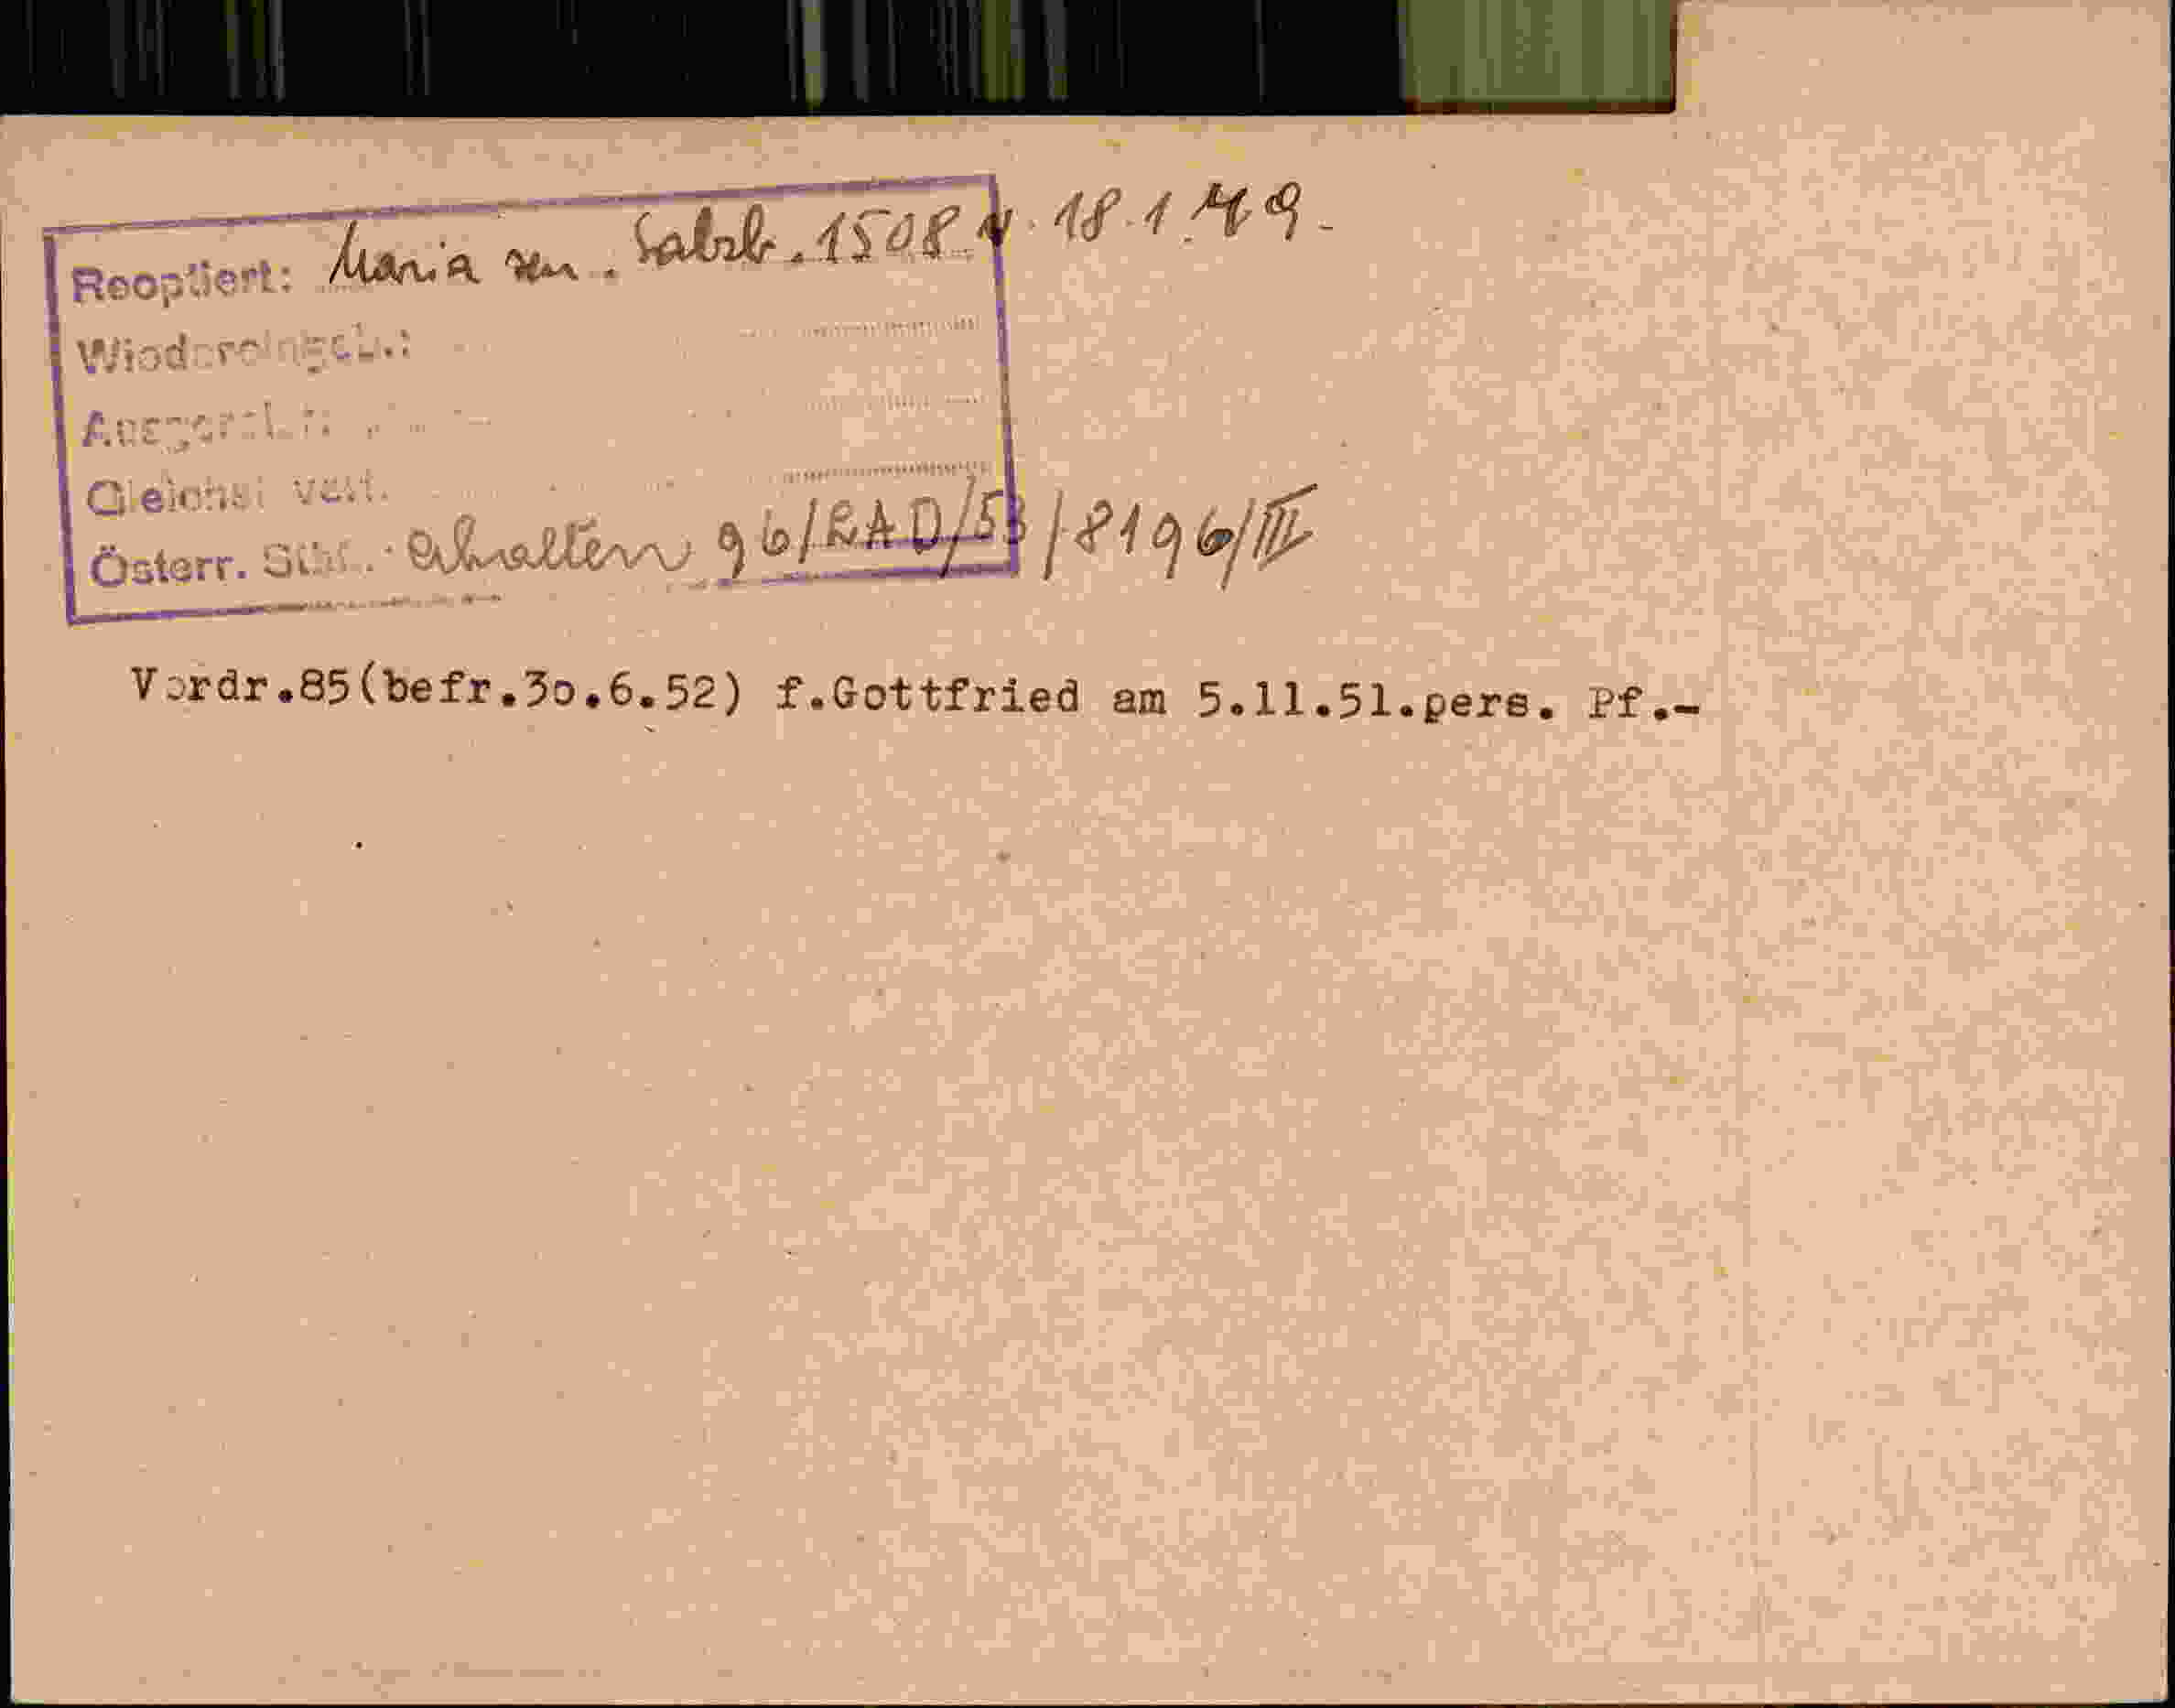 Reoptiert: Maria sen. Salzb. 1508 v. 18.1.49.-
Wiedereingeb.:
Gleichst
Österr. Stb. erhalten 96/RAD/53/8196/III
Vordr.85(befr.3o.6.52) f.Gottfried am 5.11.51.pers. Pf.-